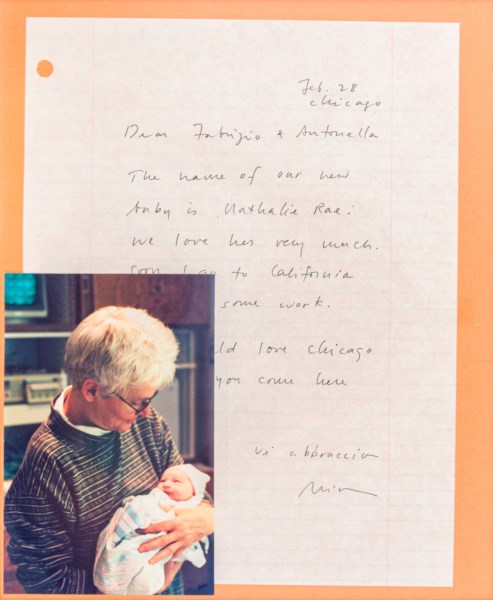 Feb. 28
chicago
Dear Fabrizio & Antonella
The name of our new
baby is Nathalie Rae.
we love her very much.
soon I go to California
some work.
ld love chicago
you come here
vi abbraccio